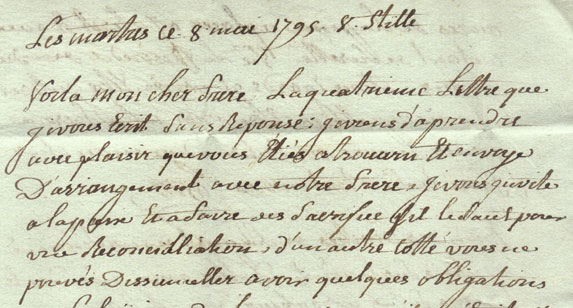 Les martres ce 8 mai 1795 V. Stille
Voila mon cher frere La quatrieme Lettre que
je vous Ecrit Sans Reponse; je viens d'aprendre
avec plaisir que vous Etiés a rouain Et en voye
D'arrangement avec notre frere, je vous
a la paix Et a faire des Sacrifice s'il le faut pour
une Reconciliation, d'un autre cotté vous ne
pouvés Dissimuller avoir quelques obligations